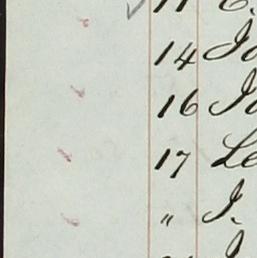 11 C.
14 Jo
16 Jo
17 Le
" J.